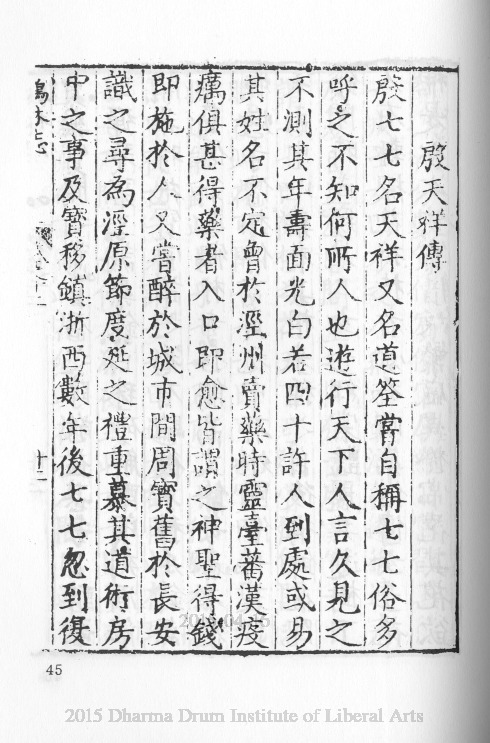 殷天祥傳
殷七七名天祥又名道筌嘗自稱七七俗多
呼之不知何所人也遊行天下人言久見之
不測其年壽面光白若四十許人到處或易
其姓名不定曾於涇州賣藥時靈臺蕃漢疫
癘俱甚得藥者入口即愈皆謂之神聖得錢
即施於人又嘗醉於城市間周寶舊於長安
識之尋為涇原節度延之禮重慕其道術房
中之事及寶移鎮浙西數年後七七忽到復
十一
45
2015 Dharma Drum Institute of Liberal Arts